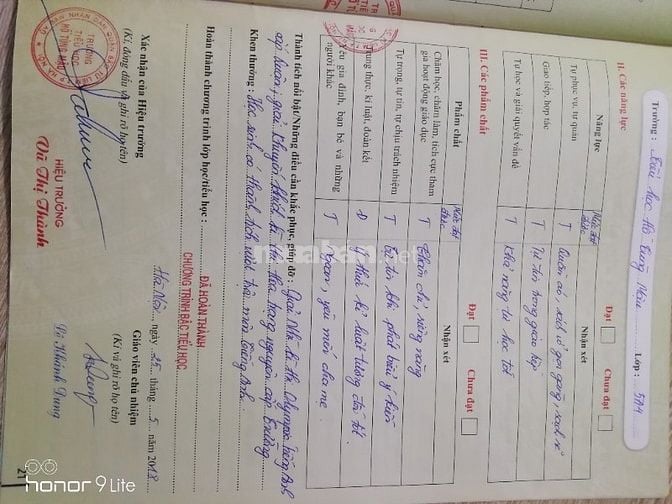 Trường: Tiểu học Hồ Tùng Mậu Lớp: 5A4
II. Các năng lực
Đạt Chưa đạt
Năng lực Mức đạt được Nhận xét
Tự phục vụ, tự quản T Quần áo, sách vở gọn gàng, sạch sẽ
Giao tiếp hợp tác T Tự tin trong giao tiếp
Tự học và giải quyết vấn đề T Khả năng tự học tốt
III. Các phẩm chất
Đạt Chưa đạt
Phẩm chất Mức đạt được Nhận xét
Chăm học, chăm làm, tích cực tham gia hoạt động giáo dục T Chăm chỉ, siêng năng
Tự trọng, tự tin, tự chịu trách nhiệm T Tự tin khi phát biểu ý kiến
Trung thực, kỉ luật, đoàn kết Đ Ý thức kỉ luật tương đối tốt
Yêu gia đình, bạn bè và những người khác T Ngoan, yêu mến cha mẹ
Thành tích nổi bật/Những điều cần khắc phục, giúp đỡ: Giải Nhì kì thi Olympic tiếng Anh
cấp huyện; giải Khuyến khích kì thi Trạng nguyên cấp trường
Khen thưởng: Học sinh có thành tích vượt trội môn tiếng Anh.
Hoàn thành chương trình lớp học/tiểu học:
ĐÃ HOÀN THÀNH
CHƯƠNG TRÌNH BẬC TIỂU HỌC
Hà Nội, ngày 25 tháng 5 năm 2018
Xác nhận của Hiệu trưởng
(Kí, đóng dấu và ghi rõ họ tên)
Giáo viên chủ nhiệm
(Kí và ghi rõ họ tên)
TRƯỜNG
TIỂU HỌC
HỒ TÙNG MẬU
HIỆU TRƯỞNG
Vũ Thị Thành
Vi Khánh Dung
21
honor 9 Lite